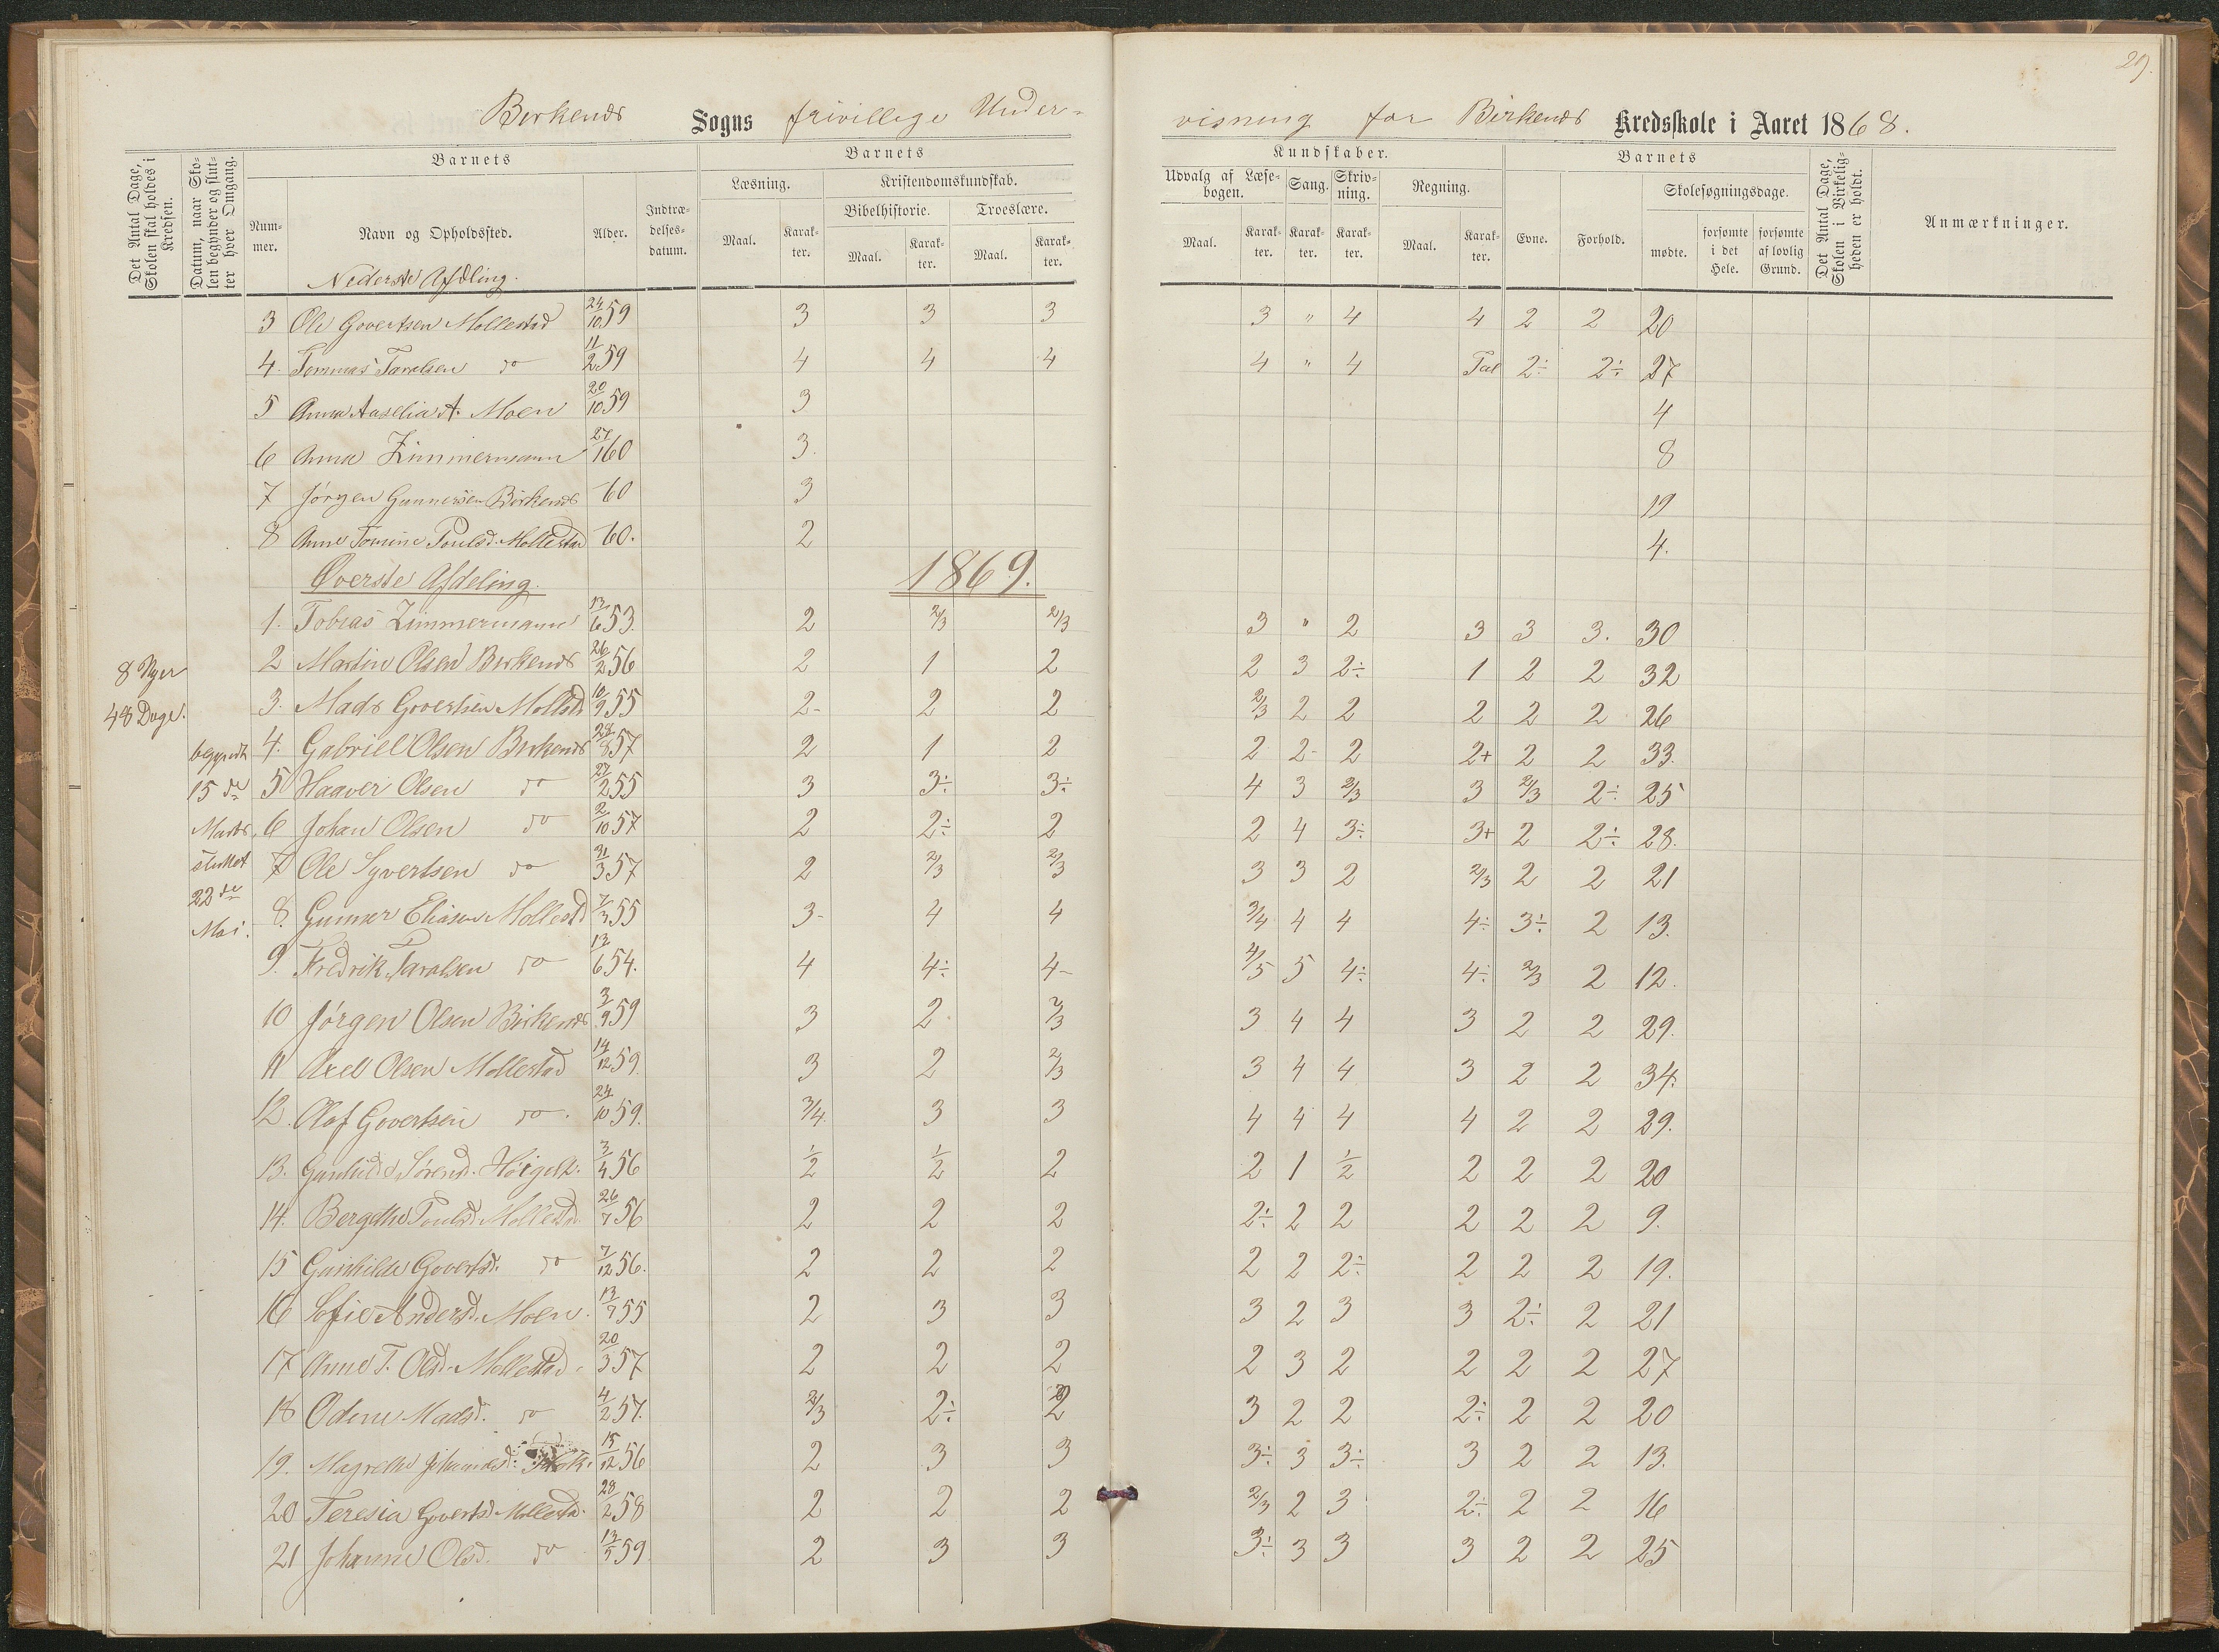 29.
Birkenes Sogns frivillige Under-
visning for Birkenes Kredsskole i Aaret 1868.
Det Antal Dage, Skolen skal holdes i Kredsen.
Datum, naar Skolen begynder og slutter hver Omgang.
Barnets
Nummer.
Navn og Opholdssted.
Alder.
Indtrædelsesdatum.
Barnets
Læsning.
Kristendomskundskab.
Bibelhistorie.
Troeslære.
Maal. Karakter. Maal. Karakter. Maal. Karakter.
Kundskaber.
Udvalg af Læsebogen. Sang. Skrivning. Regning.
Maal. Karakter. Karakter. Karakter. Maal. Karakter.
Barnets
Evne. Forhold.
Skolesøgningsdage.
mødte. forsømte i det Hele. forsømte af lovlig Grund.
Det Antal Dage, Skolen i Virkeligheden er holdt.
Anmærkninger.
Nederste Afdling.
3 Ole Govertsen Mollestad 24/10 59 3 3 3 3 " 4 4 2 2 20
4. Tommas Taralsen do 11/2 59 4 4 4 4 " 4 Tal 2÷ 2÷ 27
5 Anna Aaselia A. Moen 20/10 59 3 4
6 Anna Zimmermann 27/1 60 3. 8
7 Jørgen Gunnersen Birkenes 60 3 19
8 Anne Tomine Poulsd. Mollestad 60. 2 4.
Øverste Afdeling. 1869.
1. Tobias Zimmermann 13/6 53. 2 2/3 2/3 3 " 2 3 3 3. 30
2 Martin Olsen Birkenes 26/2 56 2 1 2 2 3 2÷ 1 2 2 32
3. Mads Govertsen Mollstd 10/9 55 2- 2 2 2/3 2 2 2 2 2 26
4. Gabriel Olsen Birkenes 28/8 57 2 1 2 2 2- 2 2+ 2 2 33.
5 Haaver Olsen do 27/2 55 3 3÷ 3÷ 4 3 2/3 3 2/3 2÷ 25
6 Johan Olsen do 2/10 57 2 2÷ 2 2 4 3÷ 3+ 2 2÷ 28.
7 Ole Syvertsen do 31/3 57 2 2/3 2/3 3 3 2 2/3 2 2 21
8. Gunner Eliasen Mollestd 7/3 55 3- 4 4 3/4 4 4 4÷ 3÷ 2 13.
9. Fredrik Taralsen do 13/6 54. 4 4÷ 4- 4/5 5 4÷ 4÷ 2/3 2 12.
10 Jørgen Olsen Birkenes 3/9 59 3 2 2/3 3 4 4 3 2 2 29.
11 Axel Olsen Mollestad 14/12 59. 3 2 2/3 3 4 4 3 2 2 34.
12. Olaf Govertsen do. 24/10 59. 3/4 3 3 4 4 4 4 2 2 29.
13. Gunhild Sørensd. 3/4 56 1/2 1/2 2 2 1 1/2 2 2 2 20
14. Bergethe Poulsd. Mollestd. 26/7 56 2 2 2 2÷ 2 2 2 2 2 9.
15 Gunhilde Govertsd. do 7/12 56. 2 2 2 2 2 2÷ 2 2 2 19.
16 Sofie Andersd. Moen. 13/7 55 2 3 3 3 2 3 3 2÷ 2 21
17 Anne T. Olsd. Mollestad. 20/3 57 2 2 2 2 3 2 2 2 2 27
18 Odine Madsd. do 4/2 57. 2/3 2÷ 2 3 2 2 2÷ 2 2 20
19. Magrethe Johannesd. 15/12 56 2 3 3 3÷ 3 3÷ 3 2 2 13.
20 Teresia Govertsd. Mollestd. 28/2 58 2 2 2 2/3 2 3 2÷ 2 2 16
21 Johanne Olsd. do 13/5 59. 2 3 3 3÷ 3 3 3 2 2 25
8 Uger
48 Dage.
begyndt
15 de
Marts,
sluttet
22 de
Mai.